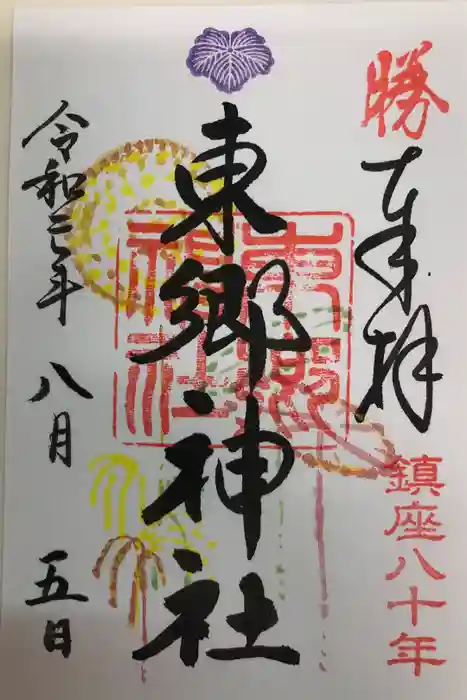 勝
奉拝
鎮座八十年
東郷神社
東郷神社
令和二年八月五日